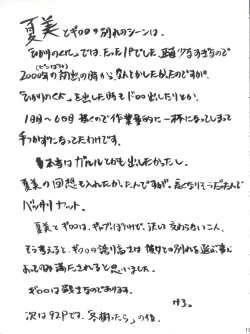 夏美とギロロの別れのシーンは、
「ひかりのくに」では、たった1Pでした。少なすぎなので
2000年の初出の時から、なんとかしたかったのですが、
「ひかりのくに」を出した時もドロロ出したりとか、
1日〜6日 描くので作業量的に一杯になってしまって
手つかずになってたわけです。
本当はガルルとかも出したかったし、
夏美の回想も入れたかったんですが、長くなりそうだったんで
バッサリカット。
夏美とギロロは、ギャップはあるけど、決して交わらない二人。
そう考えると、ギロロの誇り高さは 彼女との別れを選ぶ事に
よってのみ満たされると思いました。
ギロロは戦士なのであります。
けろ。
次は92Pです。